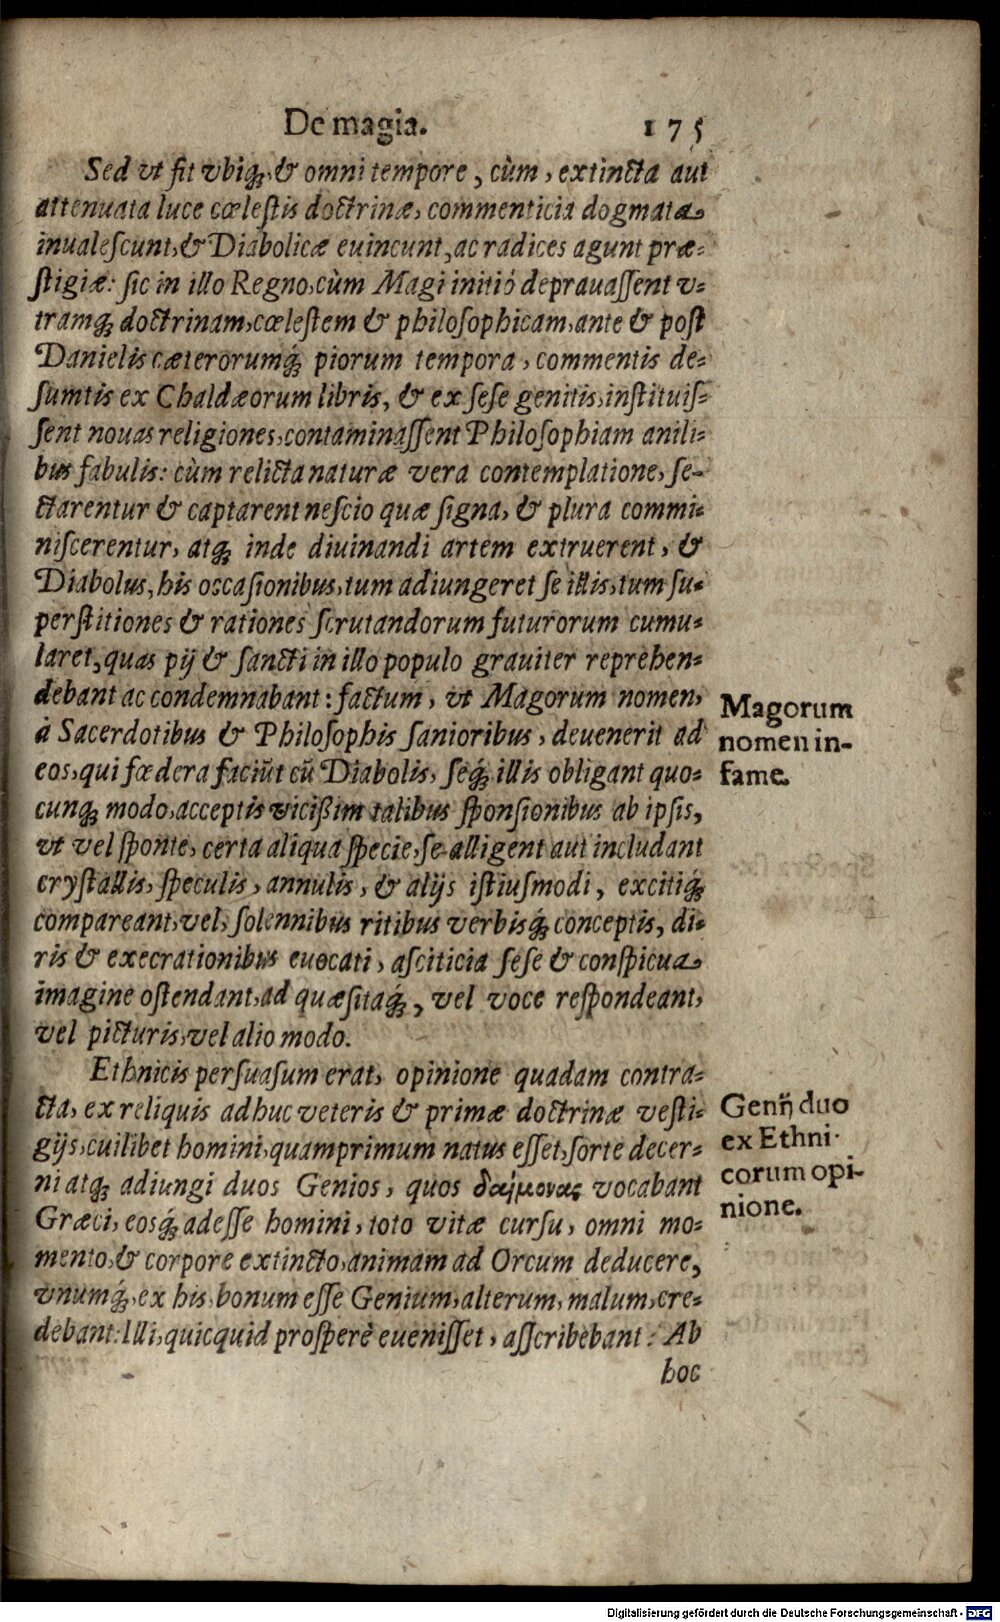 De magia. 175
Sed vt fit vbiq́; & omni tempore, cùm, extincta aut
attenuata luce cœlestis doctrinæ, commenticia dogmata
inualeſcunt, & Diabolicæ euincunt, ac radices agunt præ-
ſtigiæ: ſic in illo Regno, cùm Magi initiò deprauaſſent v-
tramq́; doctrinam, cœleſtem & philoſophicam, ante & poſt
Danielis cæterorumq́; piorum tempora, commentis de-
ſumtis ex Chaldæorum libris, & ex ſeſe genitis, inſtituiſ-
ſent nouas religiones, contaminaſſent Philoſophiam anili-
bus fabulis: cùm relicta naturæ vera contemplatione, ſe-
ctarentur & captarent neſcio quæ ſigna, & plura commi-
niſcerentur, atq́; inde diuinandi artem extruerent, &
Diabolus, his occaſionibus, tum adiungeret ſe illis, tum ſu-
perſtitiones & rationes ſcrutandorum futurorum cumu-
laret, quas pij & ſancti in illo populo grauiter reprehen-
debant ac condemnabant: factum, vt Magorum nomen,
à Sacerdotibus & Philoſophis ſanioribus, deuenerit ad
eos, qui fœdera faciũt cũ Diabolis, ſeq́; illis obligant quo-
cunq́; modo, acceptis vicißim talibus ſponſionibus ab ipſis,
vt vel ſponte, certa aliqua ſpecie, ſe alligent aut includant
cryſtallis, ſpeculis, annulis, & alijs iſtiusmodi, excitiq́;
compareant, vel, ſolennibus ritibus verbisq́; conceptis, di-
ris & execrationibus euocati, aſciticia ſeſe & conſpicua
imagine oſtendant, ad quæſitaq́;, vel voce reſpondeant,
vel picturis, vel alio modo.
Magorum
nomen in-
fame.
Ethnicis perſuaſum erat, opinione quadam contra-
cta, ex reliquis adhuc veteris & primæ doctrinæ veſti-
gijs, cuilibet homini, quamprimum natus eſſet, ſorte decer-
ni atq́; adiungi duos Genios, quos δαίμονας vocabant
Græci, eosq́; adeſſe homini, toto vitæ curſu, omni mo-
mento, & corpore extincto, animam ad Orcum deducere,
vnumq́;, ex his, bonum eſſe Genium, alterum, malum, cre-
debant: Illi, quicquid proſperè eueniſſet, aſſcribebant: Ab
hoc
Genij duo
ex Ethni-
corum opi-
nione.
Digitalisierung gefördert durch die Deutsche Forschungsgemeinschaft - DFG